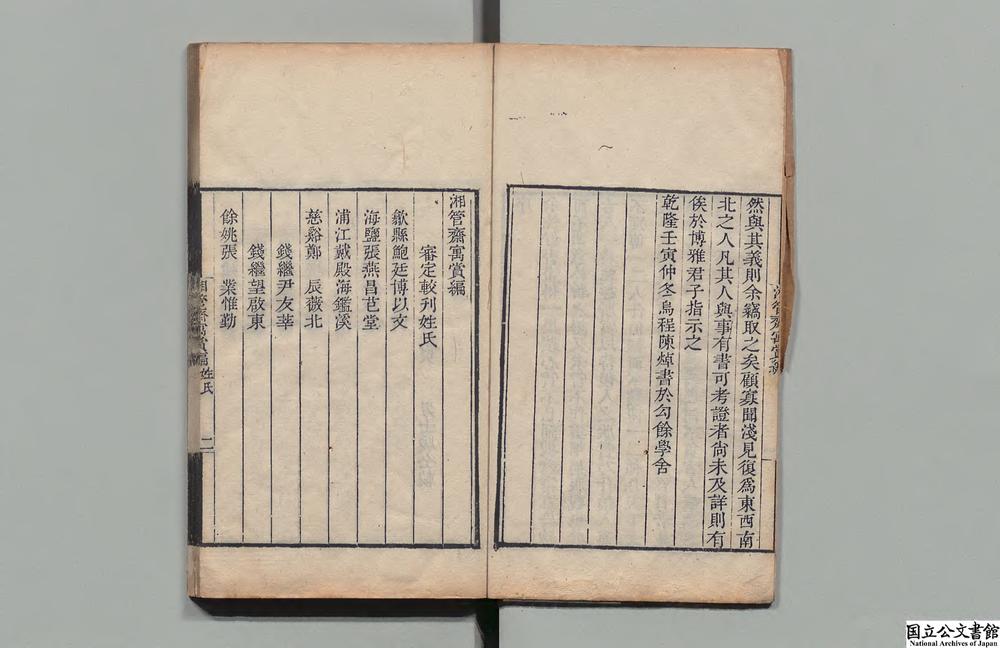 然與其義則余竊取之矣顧寡聞淺見復爲東西南
北之人凡其人與事有書可考證者尙未及詳則有
俟於博雅君子指示之
乾隆壬寅仲冬烏程陳焯書於勾餘學舍
湘管齋寓賞編
審定較刋姓氏
歙縣鮑廷博以文
海鹽張燕昌芑堂
浦江戴殿海鑑溪
慈谿鄭 辰薇北
錢繼尹友莘
錢繼望啟東
餘姚張 業惟勤
湘管齋寓賞編姓氏
二
国立公文書館
National Archives of Japan